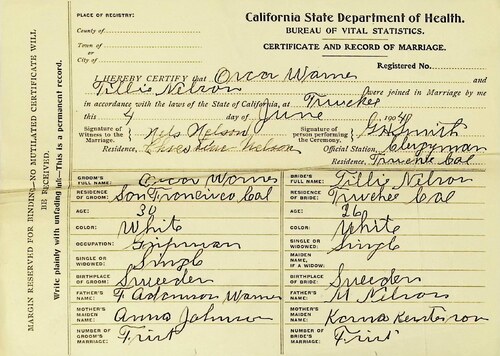 California State Department of Health.
BUREAU OF VITAL STATISTICS.
CERTIFICATE AND RECORD OF MARRIAGE.
PLACE OF REGISTRY:
County of
Town of
or
City of
Registered No.
I HEREBY CERTIFY that Oscar Warnes and
Tillie Nilson were joined in Marriage by me
in accordance with the laws of the State of California, at Truckee
this 4 day of June 190
Signature of Witness to the Marriage. Nels Nelson
Signature of person performing the Ceremony. G H Smith
Residence, Nelson
Official Station, Clergyman
Residence, Truckee Cal
GROOM'S FULL NAME: Oscar Warnes
BRIDE'S FULL NAME: Tillie Nilson
RESIDENCE OF GROOM: San Francisco Cal
RESIDENCE OF BRIDE: Truckee Cal
AGE: 30
AGE: 26
COLOR: White
COLOR: White
OCCUPATION: Gripman
SINGLE OR WIDOWED: Single
SINGLE OR WIDOWED: Single
MAIDEN NAME, IF A WIDOW:
BIRTHPLACE OF GROOM: Sweeden
BIRTHPLACE OF BRIDE: Sweeden
FATHER'S NAME: F Adamson Warnes
FATHER'S NAME: M Nilson
MOTHER'S MAIDEN NAME: Anna Johnson
MOTHER'S MAIDEN NAME: Karna
NUMBER OF GROOM'S MARRIAGE: First
NUMBER OF BRIDE'S MARRIAGE: First
MARGIN RESERVED FOR BINDING—NO MUTILATED CERTIFICATE WILL
BE RECEIVED.
Write plainly with unfading ink—This is a permanent record.